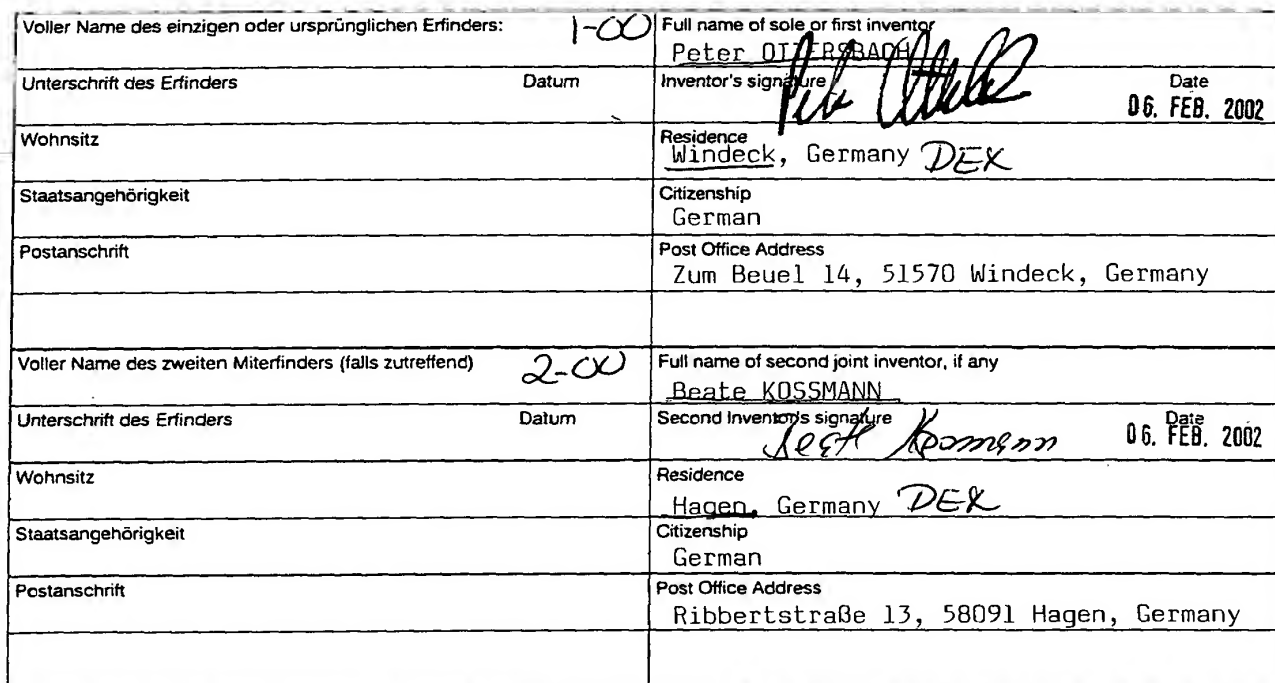 Voller Name des einzigen oder ursprünglichen Erfinders: 1-00 Full name of sole or first inventor
Peter OTTERSBACH
Unterschrift des Erfinders Datum Inventor's signature Date
06. FEB. 2002
Wohnsitz Residence
Windeck, Germany DEX
Staatsangehörigkeit Citizenship
German
Postanschrift Post Office Address
Zum Beuel 14, 51570 Windeck, Germany
Voller Name des zweiten Miterfinders (falls zutreffend) 2-00 Full name of second joint inventor, if any
Beate KOSSMANN
Unterschrift des Erfinders Datum Second Inventor's signature Date
06. FEB. 2002
Wohnsitz Residence
Hagen, Germany DEX
Staatsangehörigkeit Citizenship
German
Postanschrift Post Office Address
Ribbertstraße 13, 58091 Hagen, Germany